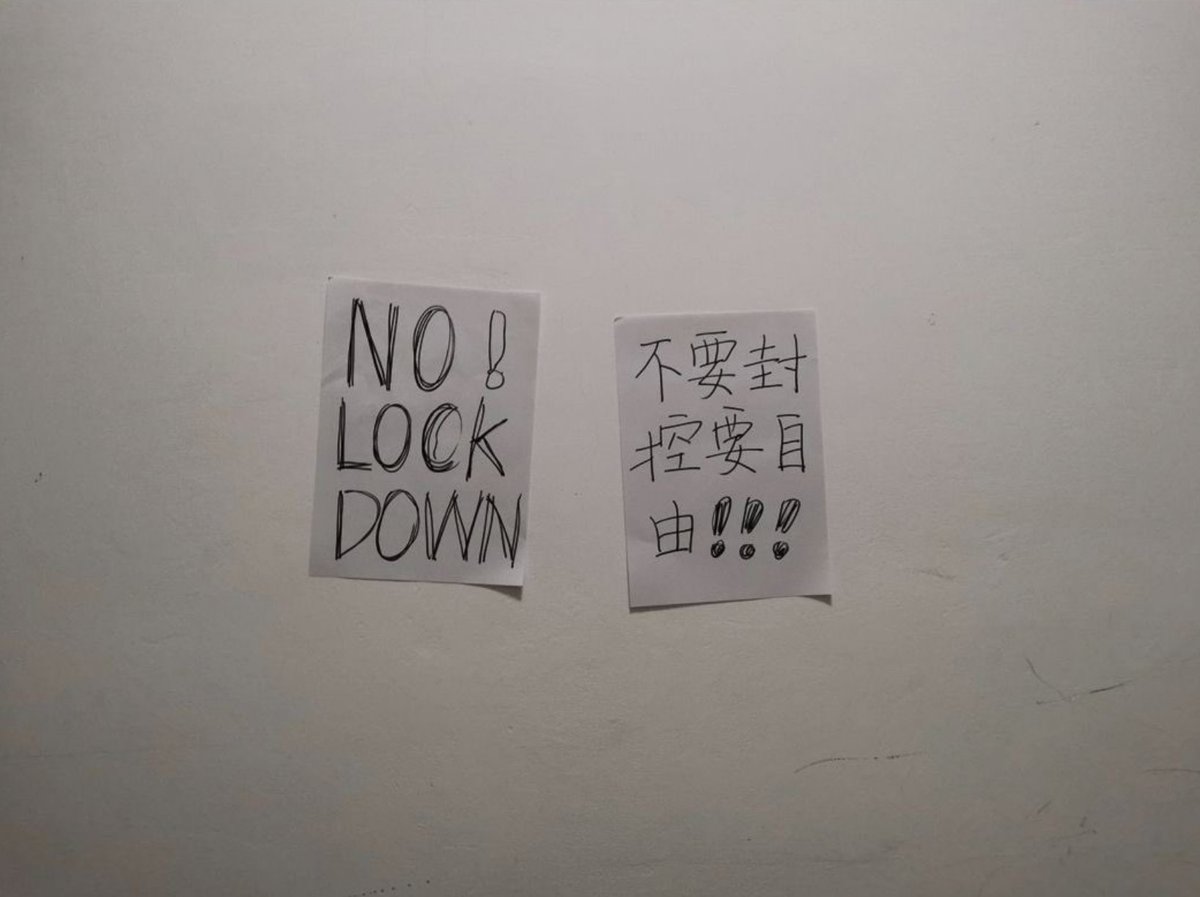 NO!
LOCK
DOWN
不要封
控要自
由!!!